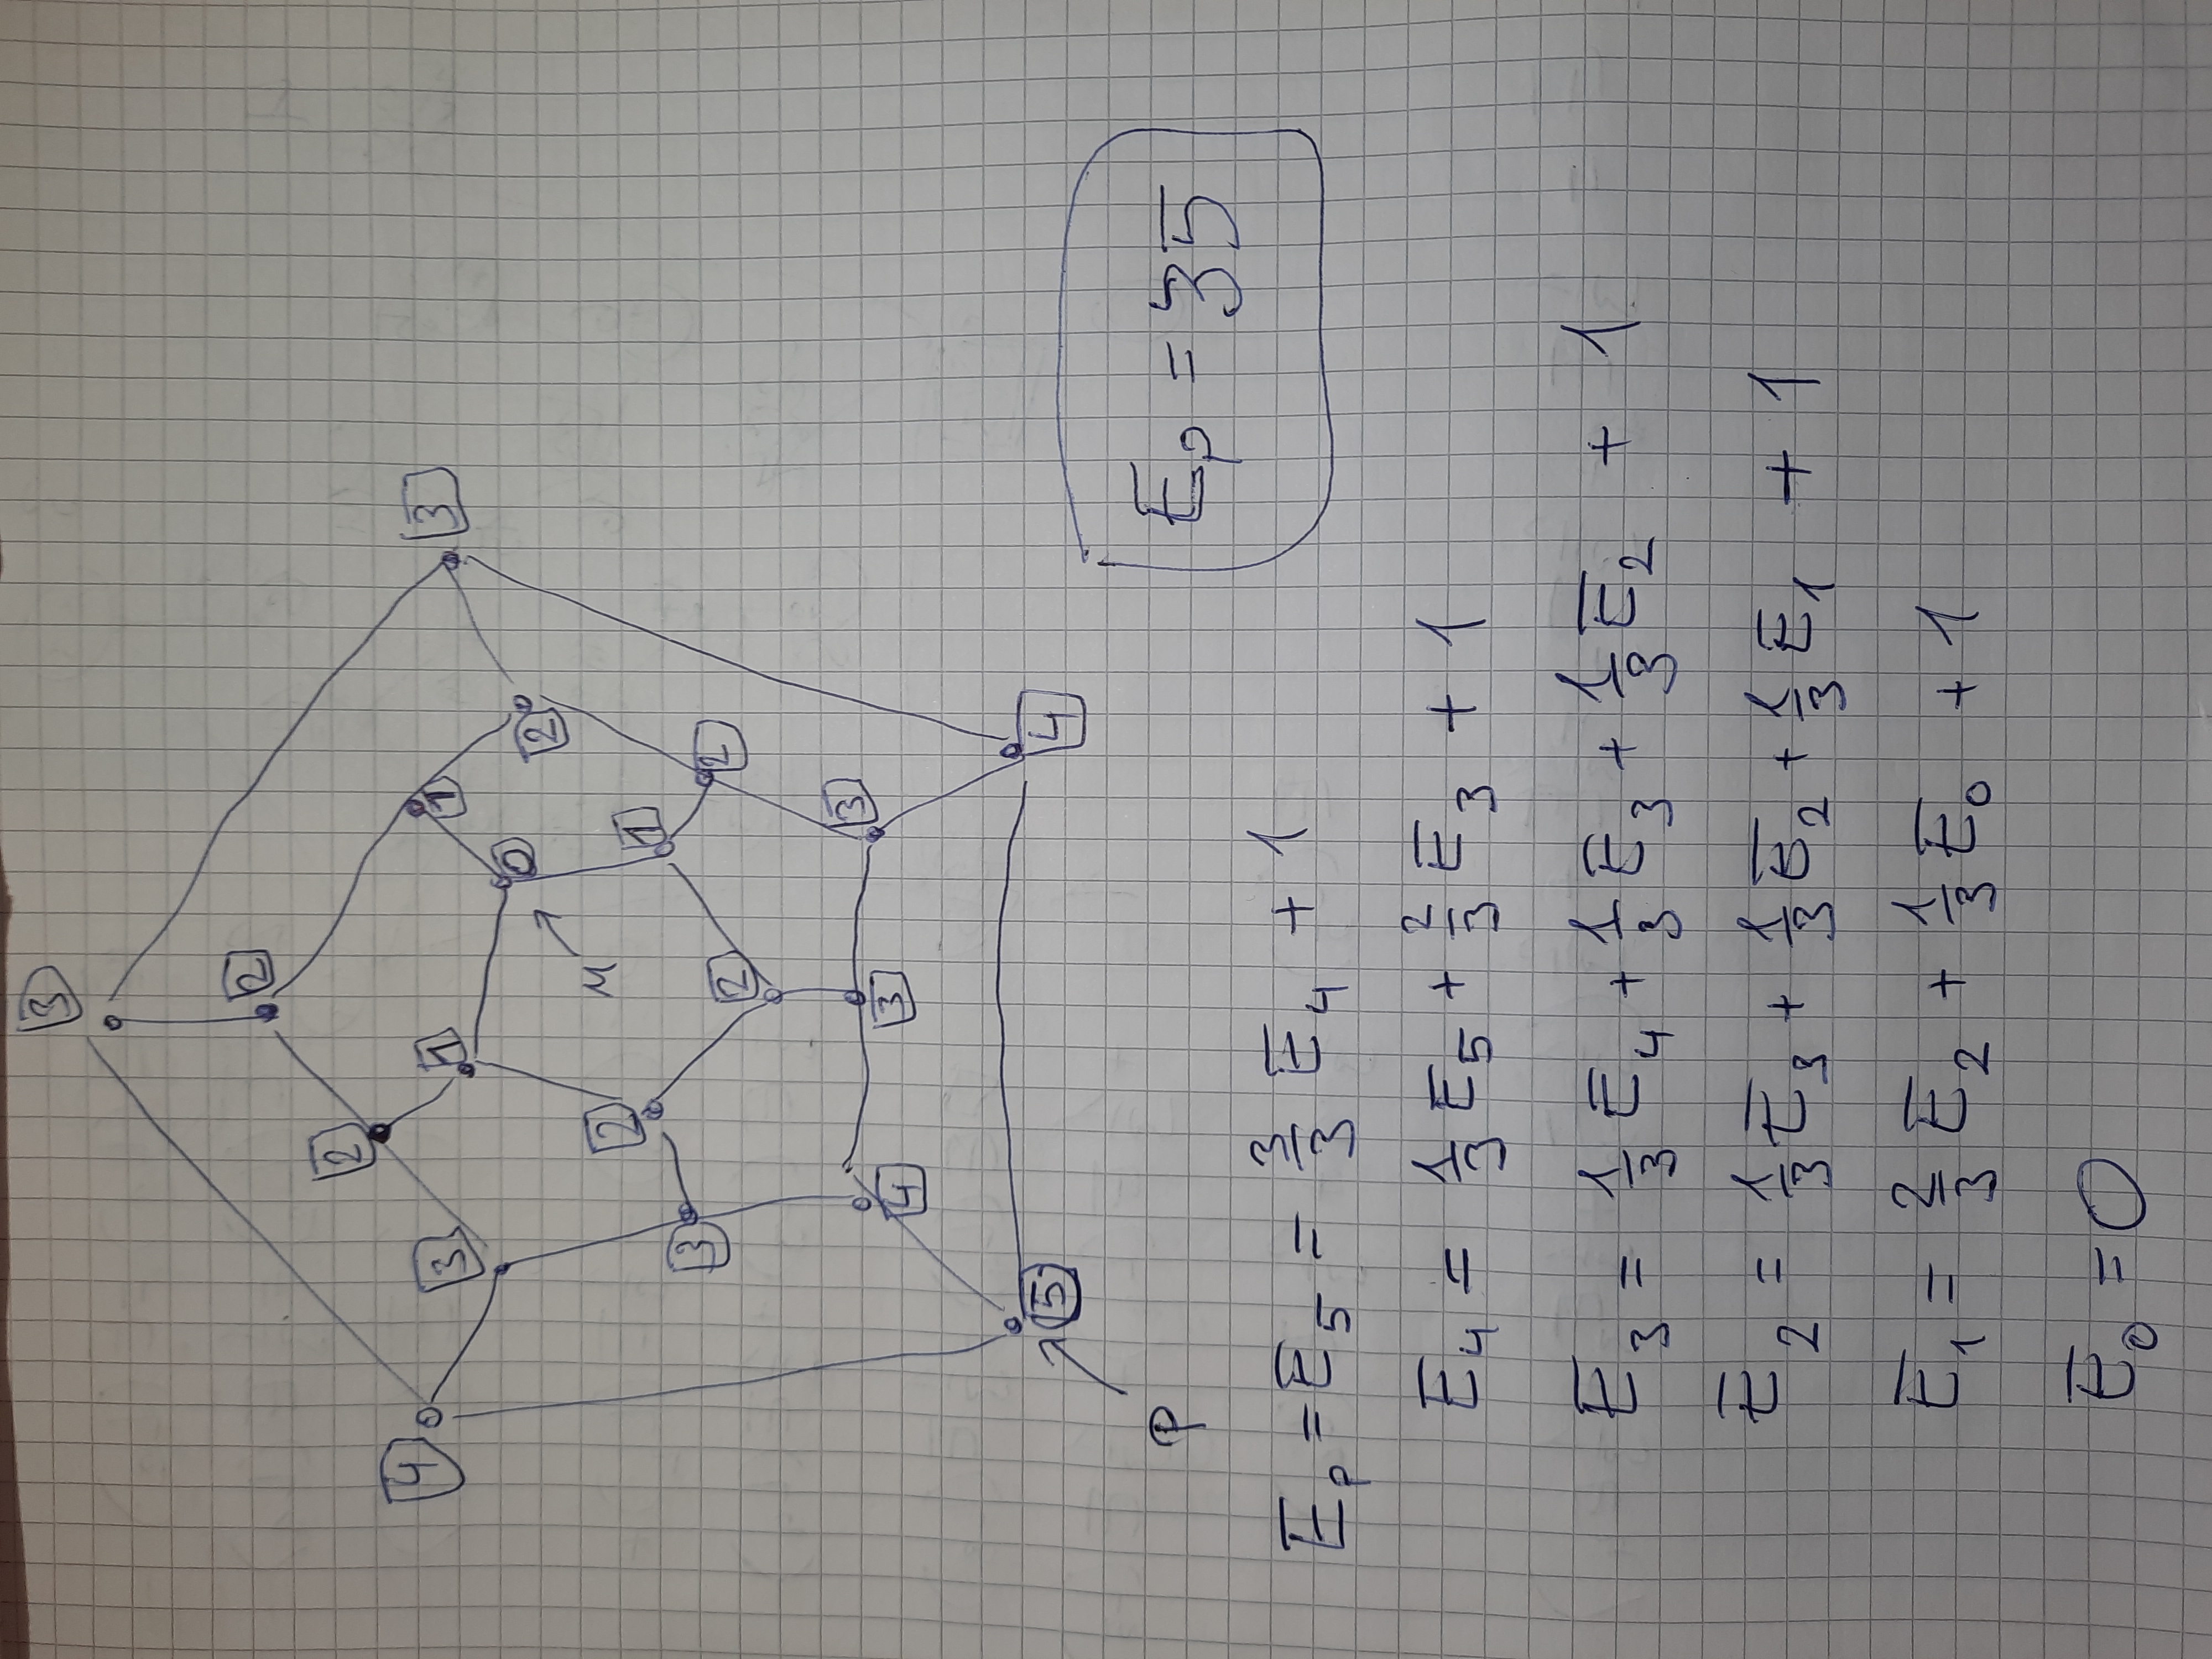 3
2
2
4
3
1
1
3
0
2
M
2
1
3
2
2
3
3
4
5
4
P
E_p = 35
E_p = E_5 = 3/3 E_4 + 1
E_4 = 1/3 E_5 + 2/3 E_3 + 1
E_3 = 1/3 E_4 + 1/3 E_3 + 1/3 E_2 + 1
E_2 = 1/3 E_3 + 1/3 E_2 + 1/3 E_1 + 1
E_1 = 2/3 E_2 + 1/3 E_0 + 1
E_0 = 0